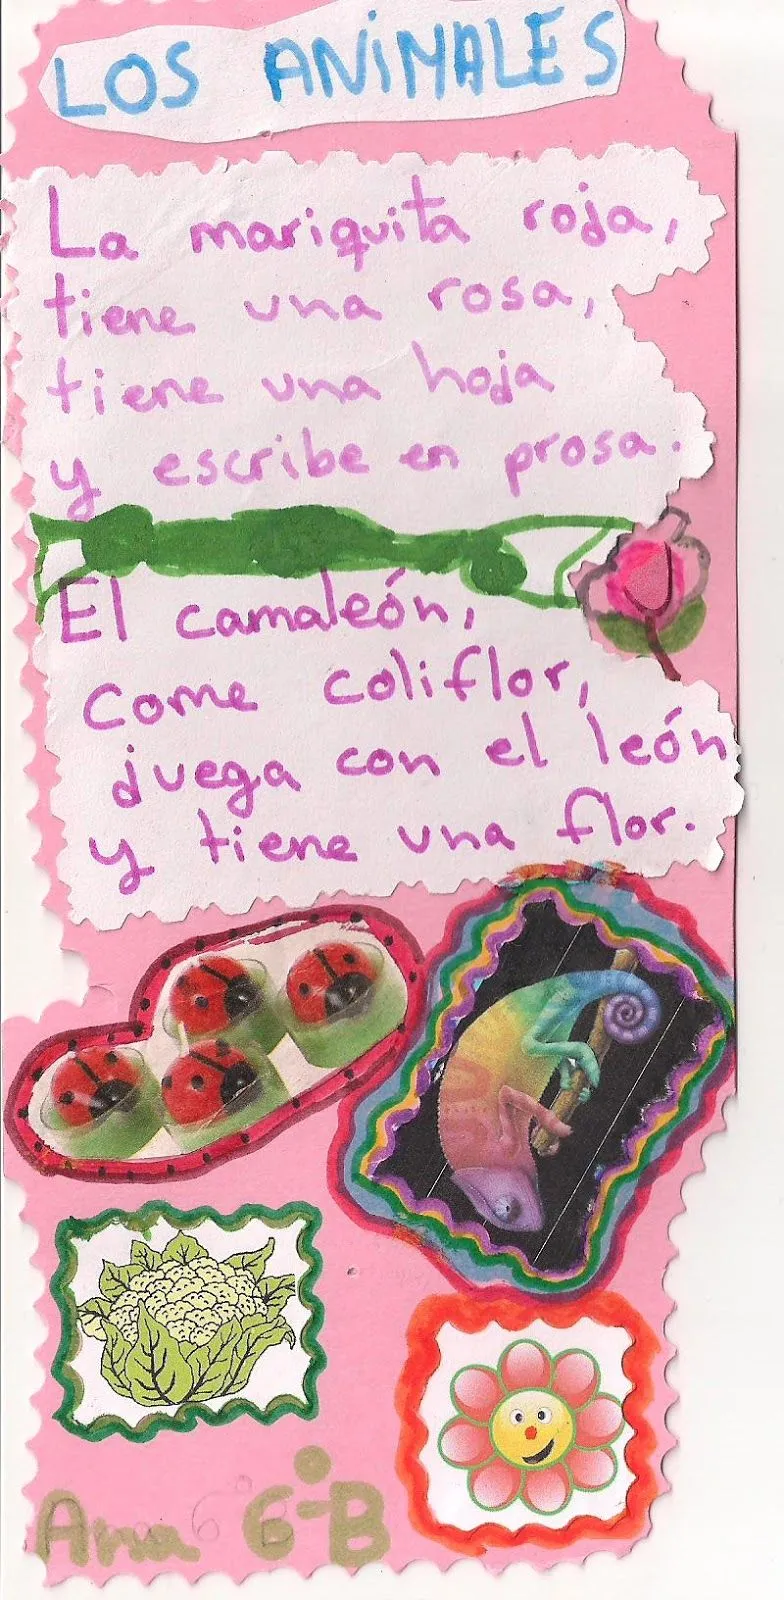 LOS ANIMALES
La mariquita roja,
tiene una rosa,
tiene una hoja
y escribe en prosa.
El camaleón,
come coliflor,
juega con el león
y tiene una flor.
Ana 6º-B